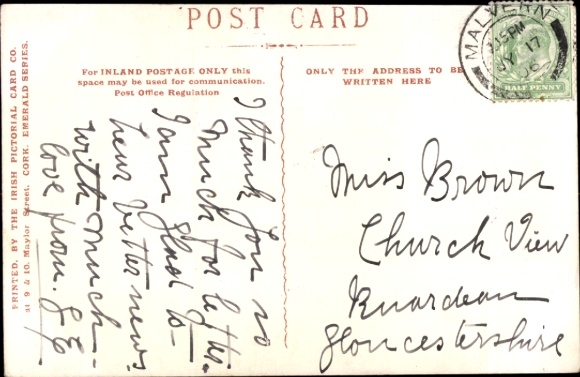 POST CARD
For INLAND POSTAGE ONLY this
space may be used for communication.
Post Office Regulation
ONLY THE ADDRESS TO BE
WRITTEN HERE
MALVERN
15PM
JY 17
HALF PENNY
I thank you so
much for letter.
I am glad to
hear better news.
with much
love from.
Miss Brown
Church View
Ruardean
Gloucestershire
PRINTED. BY THE IRISH PICTORIAL CARD CO.
at 9 & 10. Maylor Street, CORK. EMERALD SERIES.